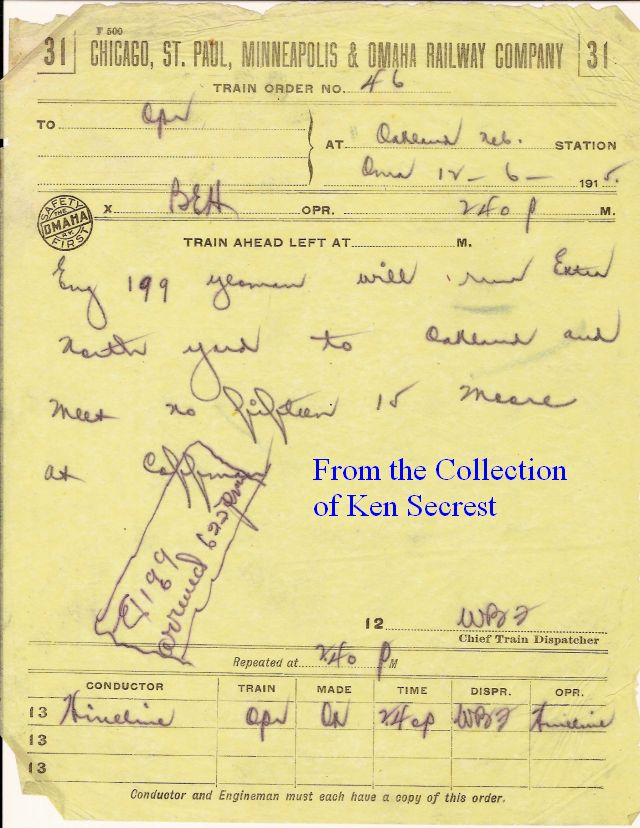 F 500
31 CHICAGO, ST. PAUL, MINNEAPOLIS & OMAHA RAILWAY COMPANY 31
TRAIN ORDER NO. 46
TO Opr AT Oakland Neb. STATION
Oma 12-6- 1915.
SAFETY FIRST THE OMAHA RY.
X BEH OPR. 240 P M.
TRAIN AHEAD LEFT AT M.
Eng 199 yeoman will run Extra
North yard to Oakland and
meet no fifteen 15
at Coffman
E 199
arrived 622 pm
From the Collection
of Ken Secrest
12 WBF
Chief Train Dispatcher
Repeated at 240 P M
CONDUCTOR TRAIN MADE TIME DISPR. OPR.
13 Hineline Opr 240p WBF Hineline
13
13
Conductor and Engineman must each have a copy of this order.